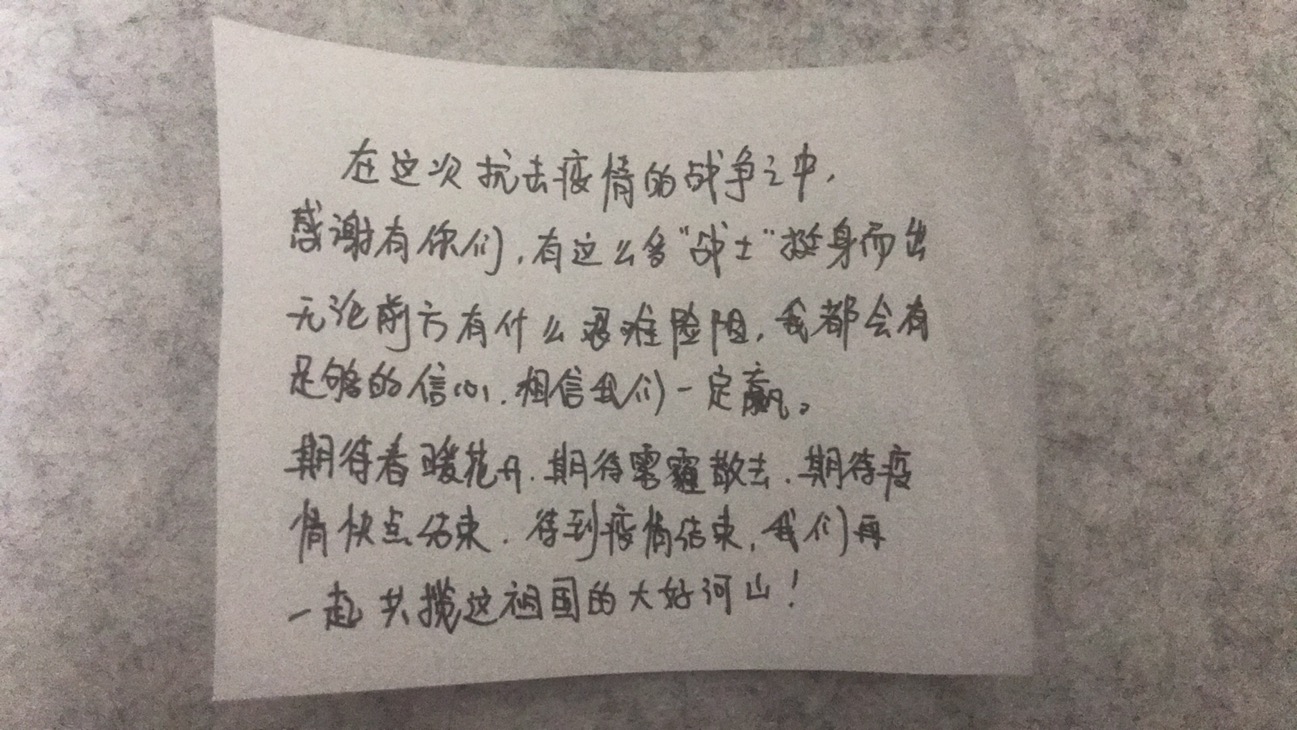 在这次抗击疫情的战争之中，
感谢有你们，有这么多“战士”挺身而出
无论前方有什么艰难险阻，我都会有
足够的信心，相信我们一定赢。
期待春暖花开，期待雾霾散去，期待疫
情快点结束，待到疫情结束，我们再
一起共揽这祖国的大好河山！